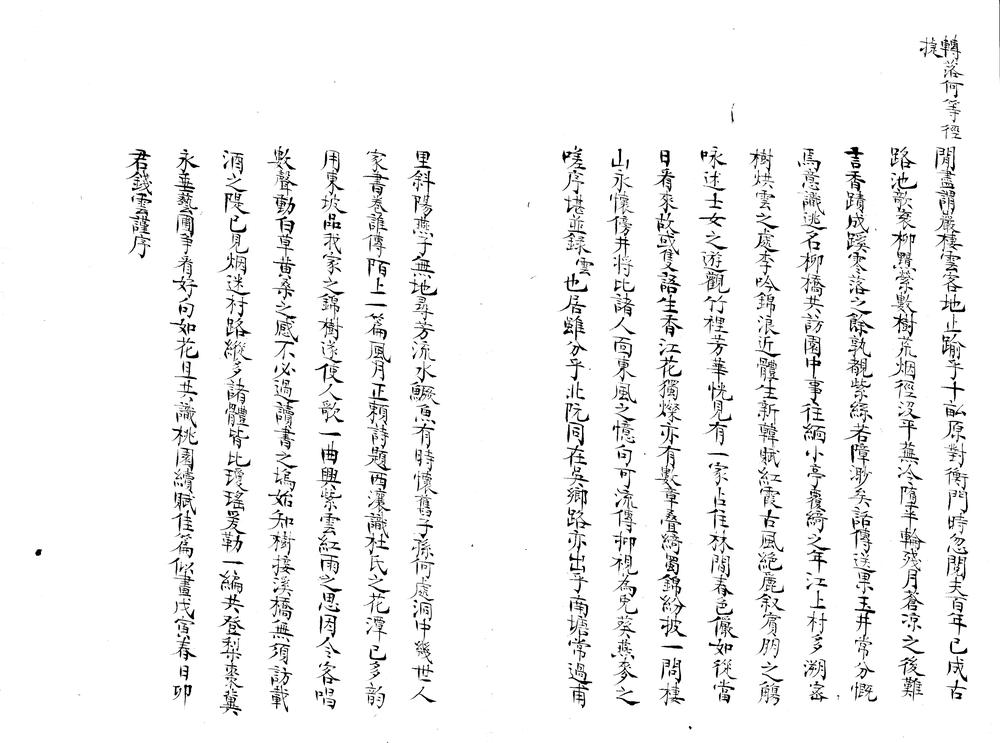 轉落何等徑
捷
閒盡謂巖棲雲客地止踰乎十畝原對衡門時忽閱夫百年已成古
路池歌衰柳黑縈數樹荒烟徑沒平蕪冷墮半輪殘月蒼涼之後難
言香蹟成蹊零落之餘孰覩紫絲若障渺矣話傳送果玉井常分慨
焉意識逃名柳橋共訪園中事往緬小亭覆綺之年江上村多溯密
樹烘雲之處李吟錦浪近體生新韓賦紅霞古風絕麗叙賓朋之觴
咏述士女之遊觀竹裡芳華恍見有一家占住林間春色儼如從當
日看來故或隻語生香江花獨燦亦有數章疊綺蜀錦紛披一問棲
山永懷傍井將比諸人面東風之憶句可流傳抑視為兔葵燕麥之
嗟序堪並錄雲也居雖分乎北阮同在吳鄉路亦出乎南塘常過甫
里斜陽燕子無地尋芳流水鱖魚有時懷舊子孫何處洞中幾世人
家書卷誰傳陌上一篇風月正賴詩題西瀼識杜氏之花潭已多韵
用東坡品我家之錦樹遂使人歌一曲興紫雲紅雨之思因令客唱
數聲動白草黃桑之感不必過讀書之塢始知樹接溪橋無須訪載
酒之隄已見烟迷村路縱多諸體皆比瓊瑤爰勒一編共登梨棗冀
永垂藝圃爭看好句如花且共識桃園續賦佳篇似畫戊寅春日卯
君錢雲謹序